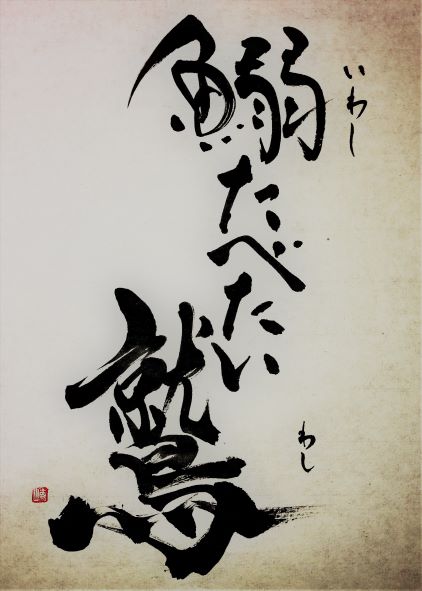 鰯たべたい鷲
いわし
わし